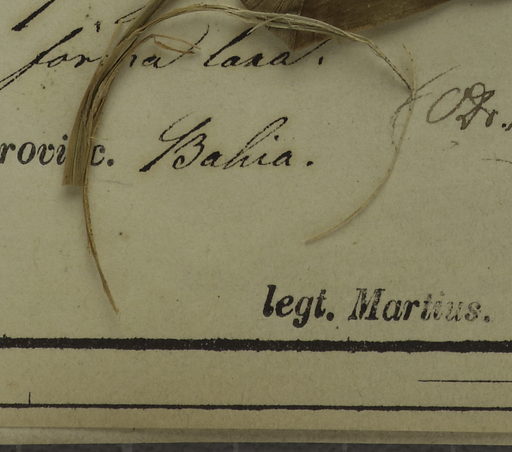 forma laxa.
rovinc. Bahia.
legt. Martius.